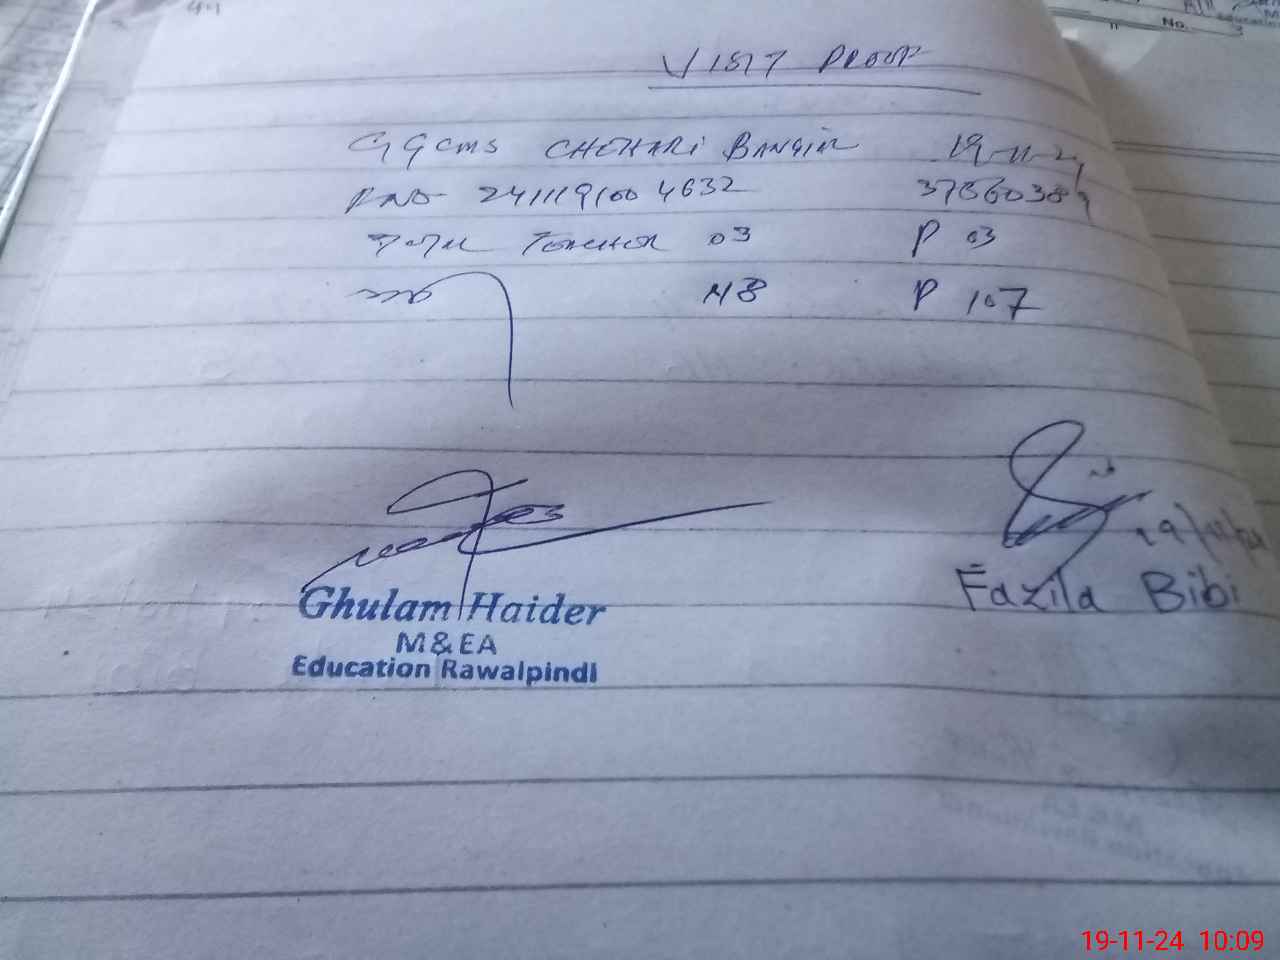 44
No. 3
VISIT PROOF
GGCMS CHOHARI 19-11-24
R NO 241119100 4632 37360389
Total Teacher 03 P 03
118 P 107
19/11/24
Fazila Bibi
Ghulam Haider
M&EA
Education Rawalpindi
19-11-24 10:09